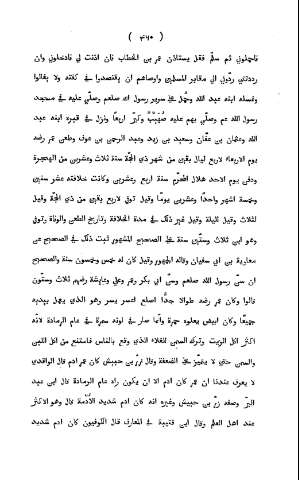 ( ٤٦٠ )
فاحملوني ثم سلّم فقل يستاذن عمر بن الخطاب فان اذنت لي فادخلوني وان
ردّتني ردّوني الى مقابر المسلمين واوصاهم ان يقتصدوا في كفنه ولا يغالوا
وغسله ابنه عبد الله وحُمل على سرير رسول الله صلعم وصلّي عليه في مسجد
رسول الله صلعم وصلّى بهم عليه صُهَيْب وكَبَّر اربعا ونزل في قبره ابنه عبد
الله وعثمان بن عفّان وسعيد بن زيد وعبد الرحمن بن عوف وطعن عمر رضه
يوم الاربعاء لاربع ليال بقين من شهر ذي الحجّة سنة ثلاث وعشرين من الهجرة
ودفن يوم الاحد هلال المحرّم سنة اربع وعشرين وكانت خلافته عشر سنين
وخمسة اشهر واحدا وعشرين يوما وقيل توفي لاربع بقين من ذي الحجّة وقيل
لثلاث وقيل لليلة وقيل غير ذلك في مدة الخلافة وتاريخ الطعن والوفاة وتوفي
وهو ابن ثلاث وستّين سنة على الصحيح المشهور ثبت ذلك في الصحيح عن
معاوية بن ابي سفيان وقاله الجمهور وقيل كان له خمس وخمسون سنة والصحيح
ان سن رسول الله صلعم وسنّ ابي بكر وعمر وعلي وعايشة رضهم ثلاث وستون
قالوا وكان عمر رضه طوالا جدّا اصلع اعسر يسر وهو الذي يعمل بيديه
جميعًا وكان ابيض يعلوه حمرة وانّما صار في لونه سمرة في عام الرمادة لانّه
اكثر اكل الزيت وترك السمن للغلاء الذي وقع بالناس فامتنع من اكل اللبن
والسمن حتى لا يتميّز على الضعفة وقال زرّ بن حبيش كان عمر ادم قال الواقدي
لا يعرف عندنا ان عمر كان ادم الا ان يكون راه عام الرمادة قال ابن عبد
البرّ وصفه زرّ بن حبيش وغيره انه كان ادم شديد الأدْمة قال وهو الاكثر
عند اهل العلم وقال ابن قتيبة في المعارف قال الكوفيون كان ادم شديد